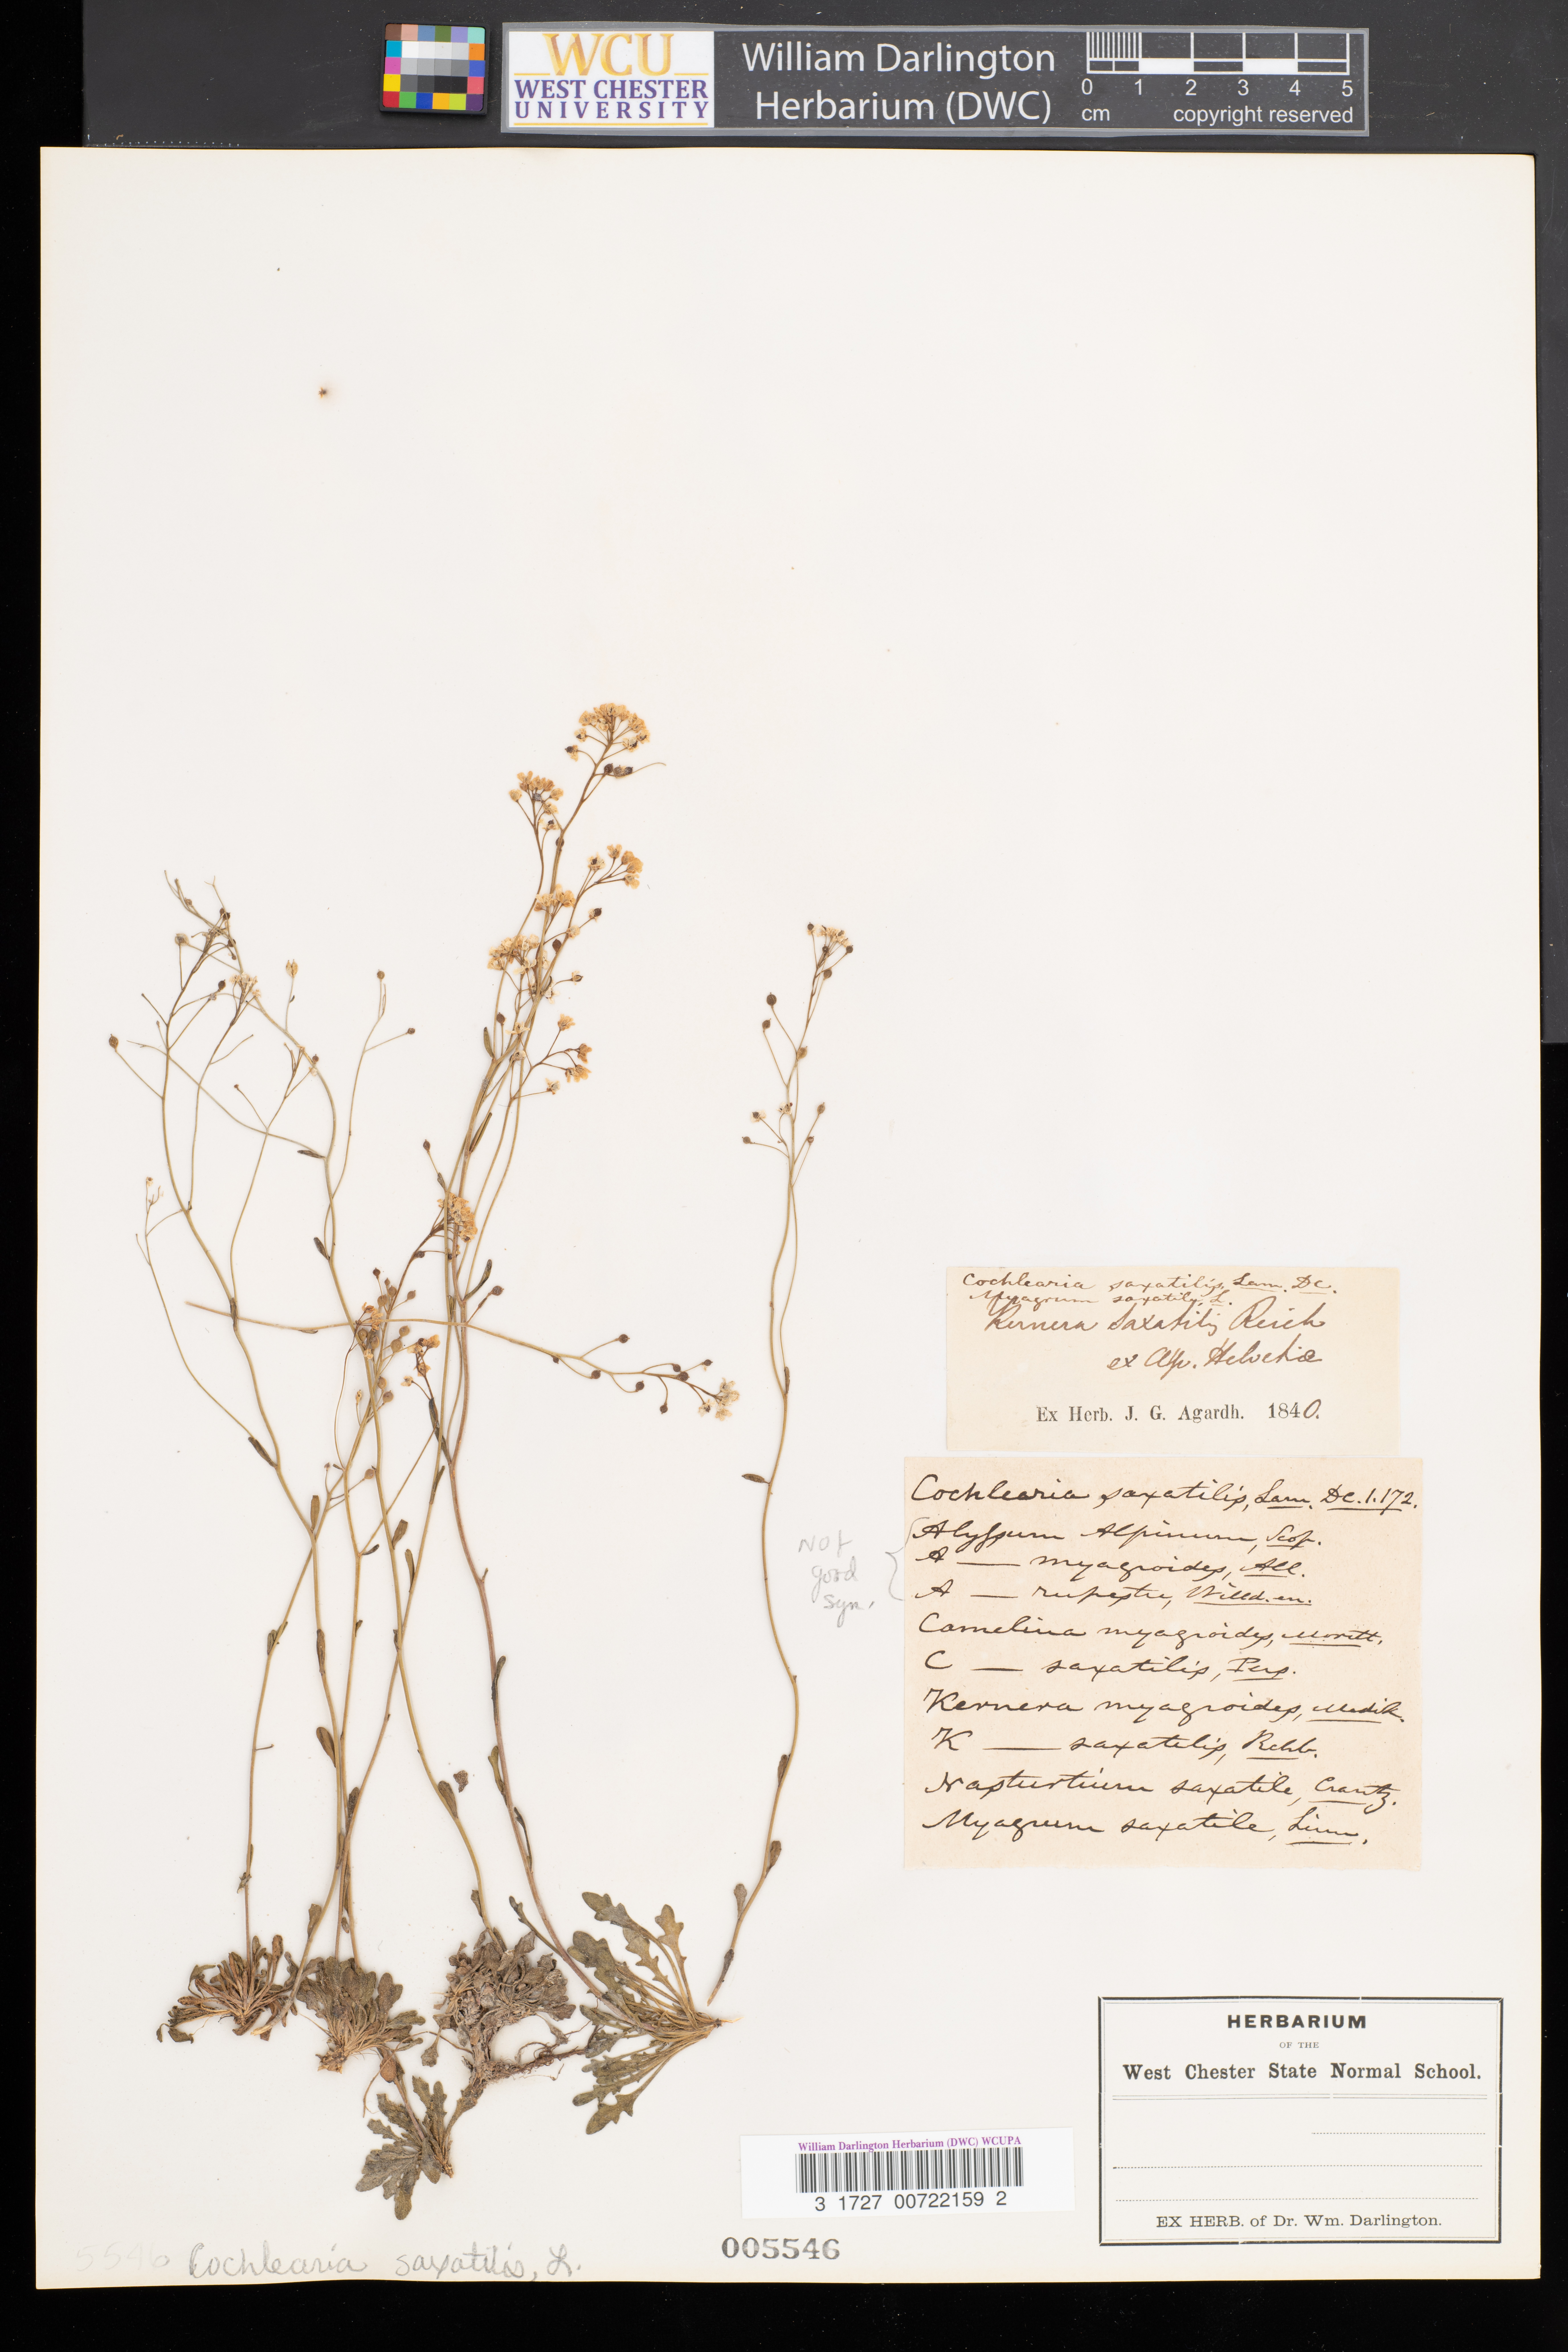 WCU
WEST CHESTER
UNIVERSITY
William Darlington
Herbarium (DWC)
0 1 2 3 4 5
cm copyright reserved
Cochlearia saxatilis, Lam. DC.
Myagrum saxatile, L.
Kernera saxatilis Reich
ex Alp. Helvetiæ
Ex Herb. J. G. Agardh. 1840.
Cochlearia saxatilis, Lam. DC. 1. 172.
Alyssum Alpinum, Scop.
A — myagroides, All.
A — rupestre, Willd. en.
Not
good
syn.
Camelina myagroides, Moritt.
C — saxatilis, Pers.
Kernera myagroides, Medik.
K — saxatilis, Rchb.
Nasturtium saxatile, Crantz.
Myagrum saxatile, Linn.
HERBARIUM
OF THE
West Chester State Normal School.
EX HERB. of Dr. Wm. Darlington.
William Darlington Herbarium (DWC) WCUPA
3 1727 00722159 2
005546
5546 Cochlearia saxatilis, L.